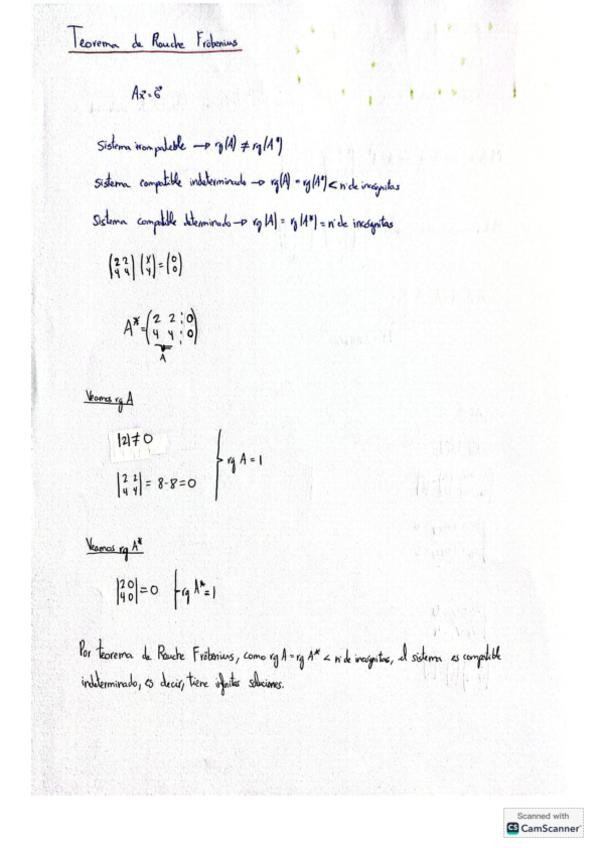 Teorema de Rouche Fröbenius
Ax⃗ = b⃗
Sistema incompatible → rg(A) ≠ rg(A*)
Sistema compatible indeterminado → rg(A) = rg(A*) < nº de incógnitas
Sistema compatible determinado → rg(A) = rg(A*) = nº de incógnitas
(2 2; 4 4) (x; y) = (0; 0)
A* = (2 2 ⋮ 0; 4 4 ⋮ 0)
A
Veamos rg A
|2| ≠ 0
|2 2; 4 4| = 8-8=0
rg A = 1
Veamos rg A*
|2 0; 4 0| = 0 rg A* = 1
Por teorema de Rouche Fröbenius, como rg A = rg A* < nº de incógnitas, el sistema es compatible
indeterminado, es decir, tiene infinitas soluciones.
Scanned with
CS CamScanner